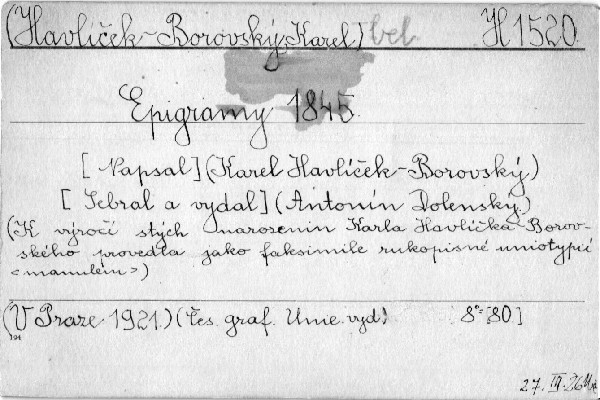 (Havlíček-Borovský, Karel) bel. H 1520
Epigramy 1845.
[Napsal] (Karel Havlíček-Borovský.)
[Sebral a vydal] (Antonín Dolenský.)
(K výročí stých narozenin Karla Havlíčka Borov-
ského provedla jako faksimile rukopisné uniotypií
<manulém>)
(V Praze 1921.) (Čes. graf. Unie. vyd.) 8º [80]
194
27. IX. 26